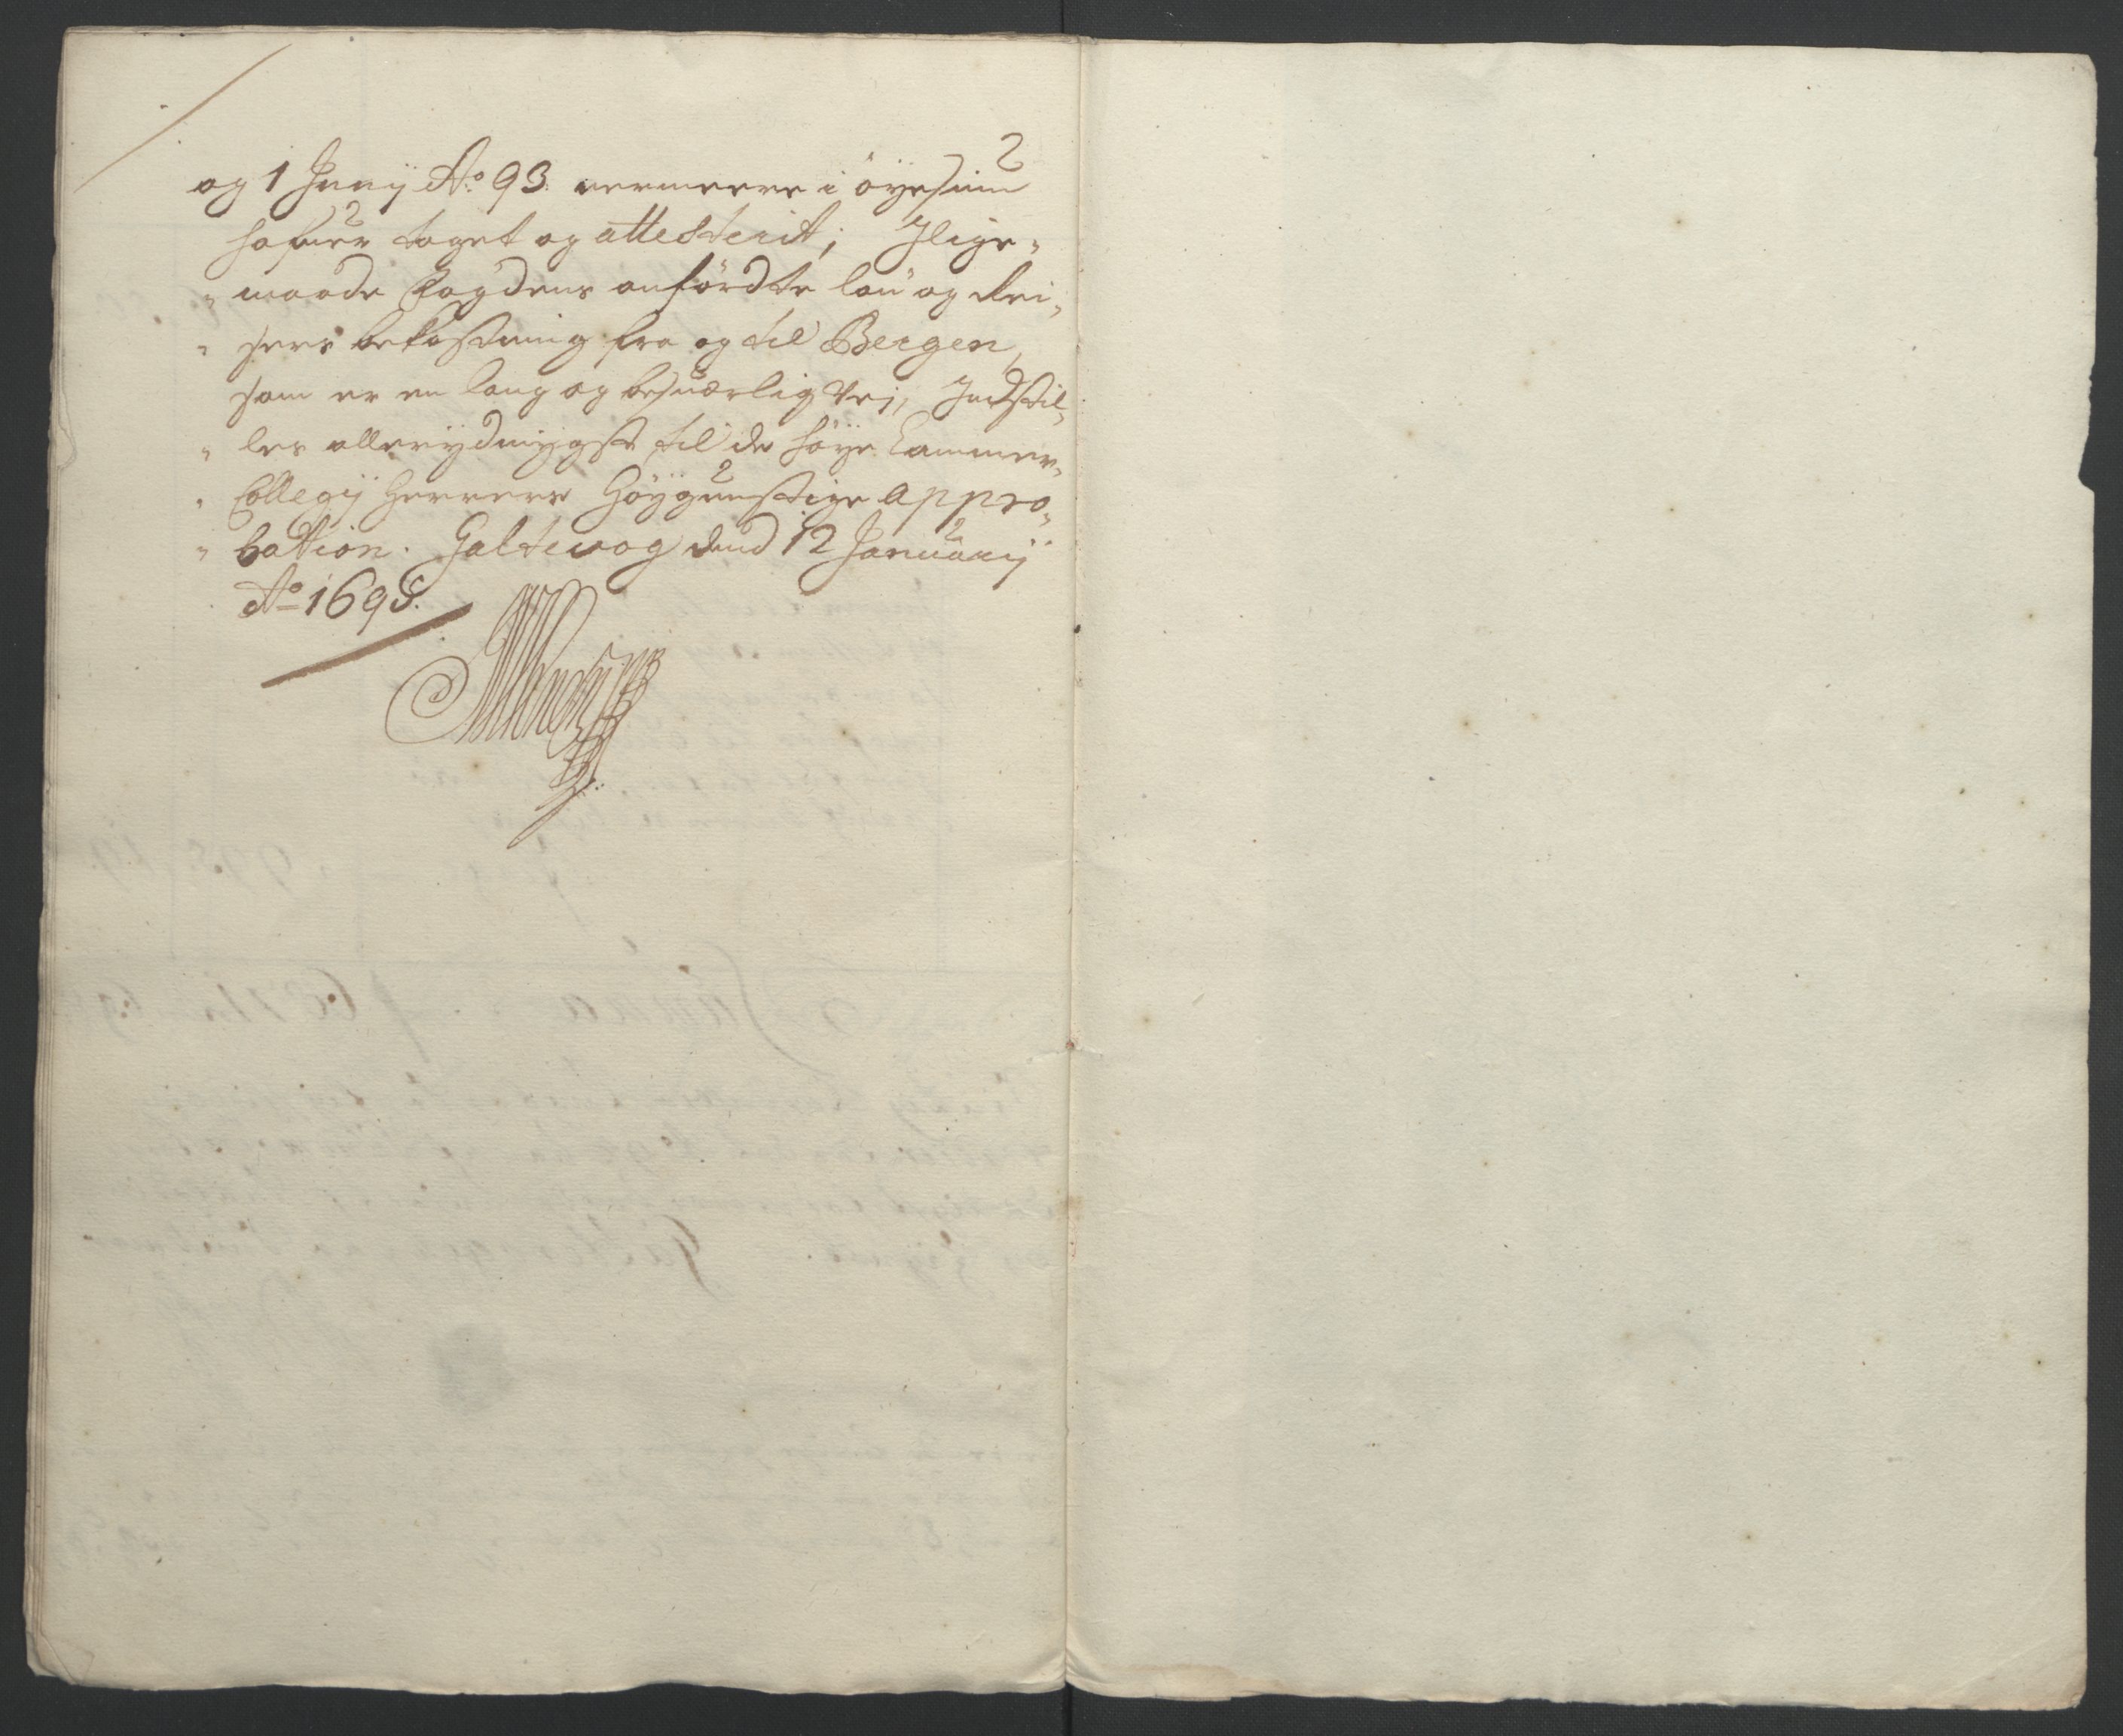 og 1 Junij Ao: 93. nermeere i öyesiun
hafuer taget og attesterit; Jlige-
maade Fogdens anfördte lön og Rei-
sers bekostning fra og til Bergen,
som er en lang og besuærlig Vej, Indstil-
les allerydmygst til de höye Cammer-
Collegij Herrers Höygunstige appro-
bation. Galtevog dend 12 Januarij
Ao 1695.